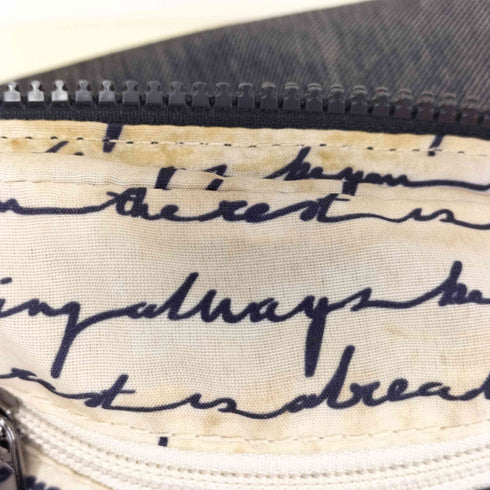 began
the rest is
ing always be
rest is alread